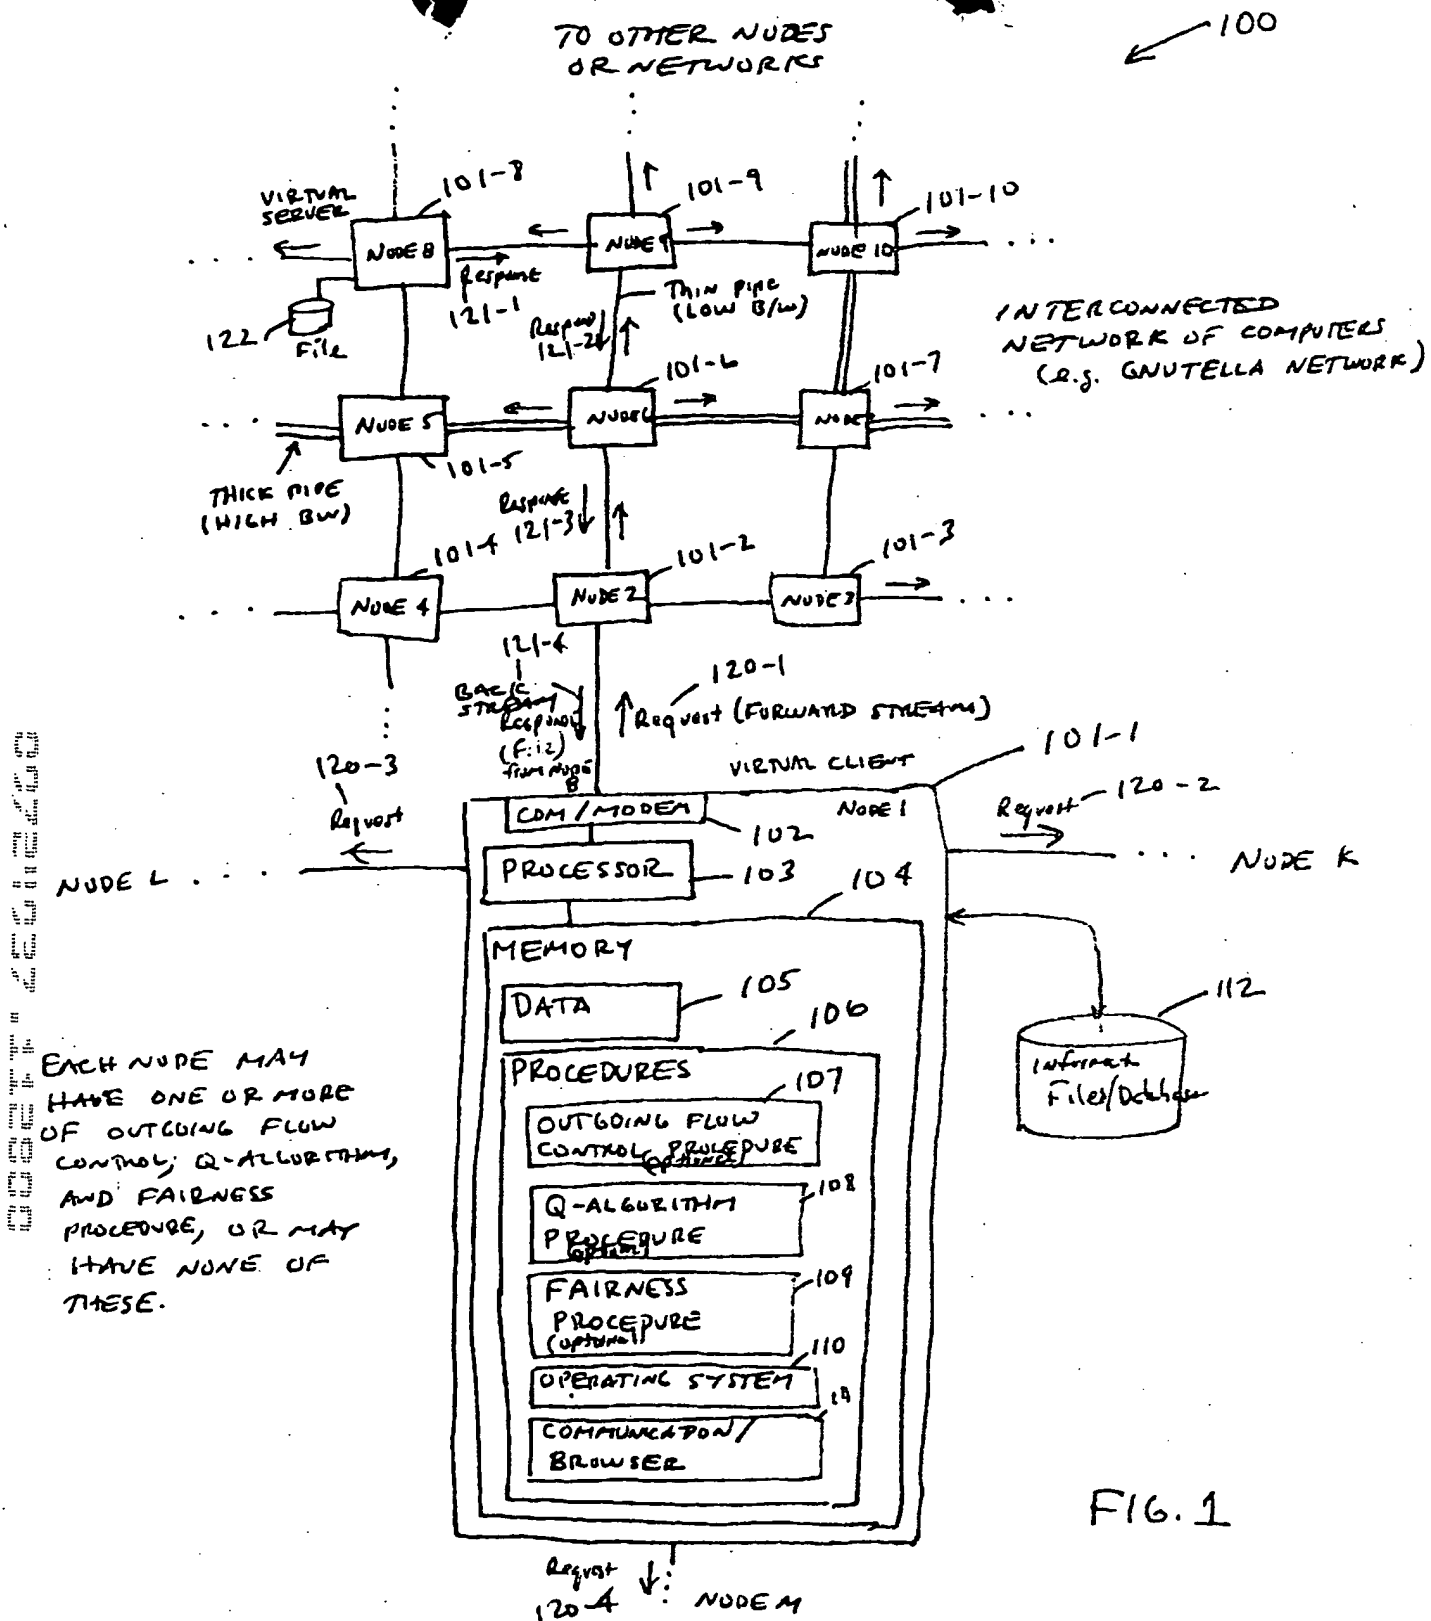 TO OTHER NODES
OR NETWORKS
100
VIRTUAL
SERVER
101-8
101-9
101-10
NODE 8
NODE 9
NODE 10
Response
121-1
122
File
Thin pipe
(LOW B/W)
Respons
121-2
INTERCONNECTED
NETWORK OF COMPUTERS
(e.g. GNUTELLA NETWORK)
101-6
101-7
NODE 5
NODE 6
NODE
101-5
THICK PIPE
(HIGH BW)
Response
121-3
101-4
101-2
101-3
NODE 4
NODE 2
NODE 3
121-4
BACK
STREAM
Response
(File)
from NODE
8
120-1
Request (FORWARD STREAM)
120-3
Request
VIRTUAL CLIENT
101-1
NODE 1
Request 120-2
COM/MODEM
102
PROCESSOR
103
104
NODE L
NODE K
MEMORY
DATA
105
106
112
Files/Database
PROCEDURES
107
OUTGOING FLOW
CONTROL PROCEDURE
(optional)
108
Q-ALGORITHM
PROCEDURE
(optional)
109
FAIRNESS
PROCEDURE
(optional)
110
OPERATING SYSTEM
COMMUNICATION/
BROWSER
EACH NODE MAY
HAVE ONE OR MORE
OF OUTGOING FLOW
CONTROL, Q-ALGORITHM,
AND FAIRNESS
PROCEDURE, OR MAY
HAVE NONE OF
THESE.
FIG. 1
Request
120-4
NODE M